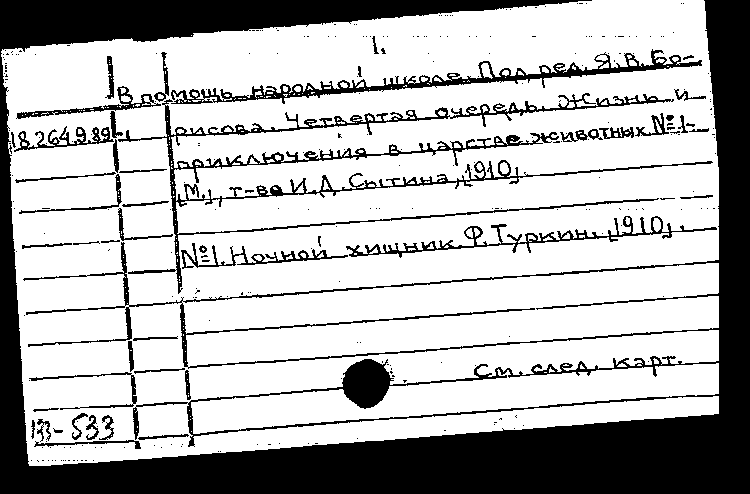 1.
В помощь народной школе. Под ред. Я. В. Бо-
18.264.9.89-1 рисова. Четвертая очередь. Жизнь и
приключения в царстве животных №1-
[М.], т-во И. Д. Сытина, [1910].
№1. Ночной хищник. Ф. Туркин. [1910].
См. след. карт.
133-533